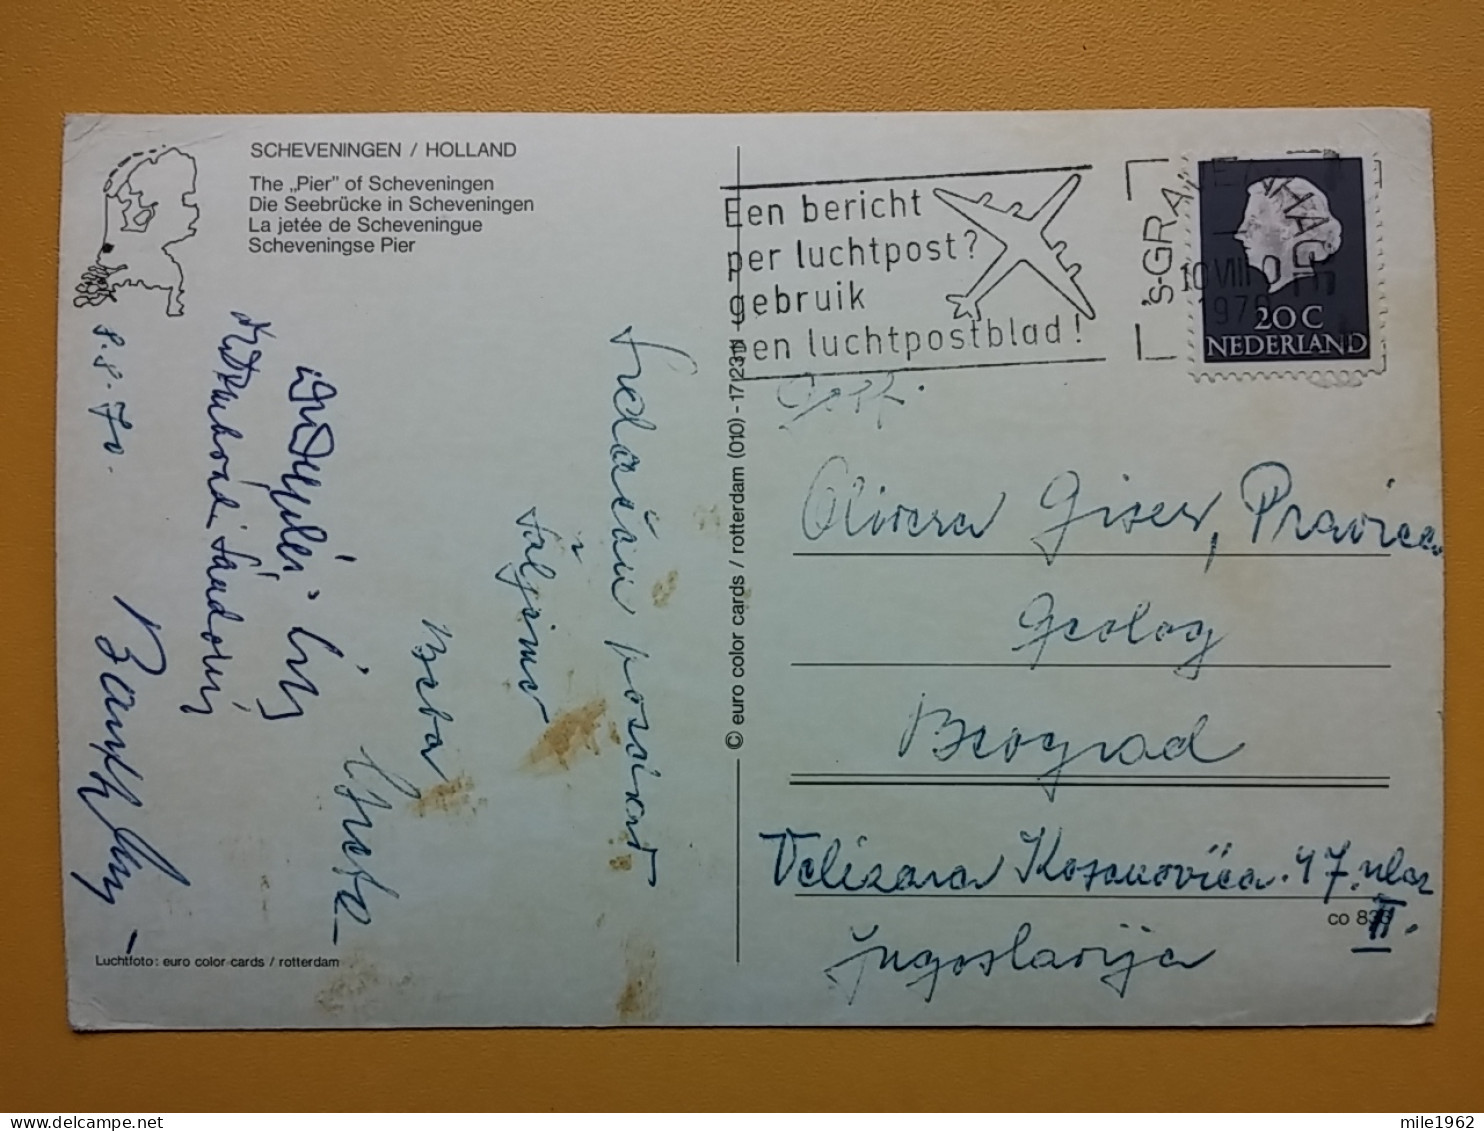 SCHEVENINGEN / HOLLAND
The „Pier" of Scheveningen
Die Seebrücke in Scheveningen
La jetée de Scheveningue
Scheveningse Pier
8.8.70.
Srdačan pozdrav
šaljemo
Beba
Luchtfoto: euro color cards / rotterdam
© euro color cards / rotterdam (010) - 17 23 11
Een bericht
per luchtpost?
gebruik
een luchtpostblad!
's-GRAVENHAGE
10 VIII
1970
20 C
NEDERLAND
Olivera Giser, Pravica
Geolog
Beograd
Velizara Kosanovića 47. ulaz
II.
co 83
Jugoslavija
mile1962